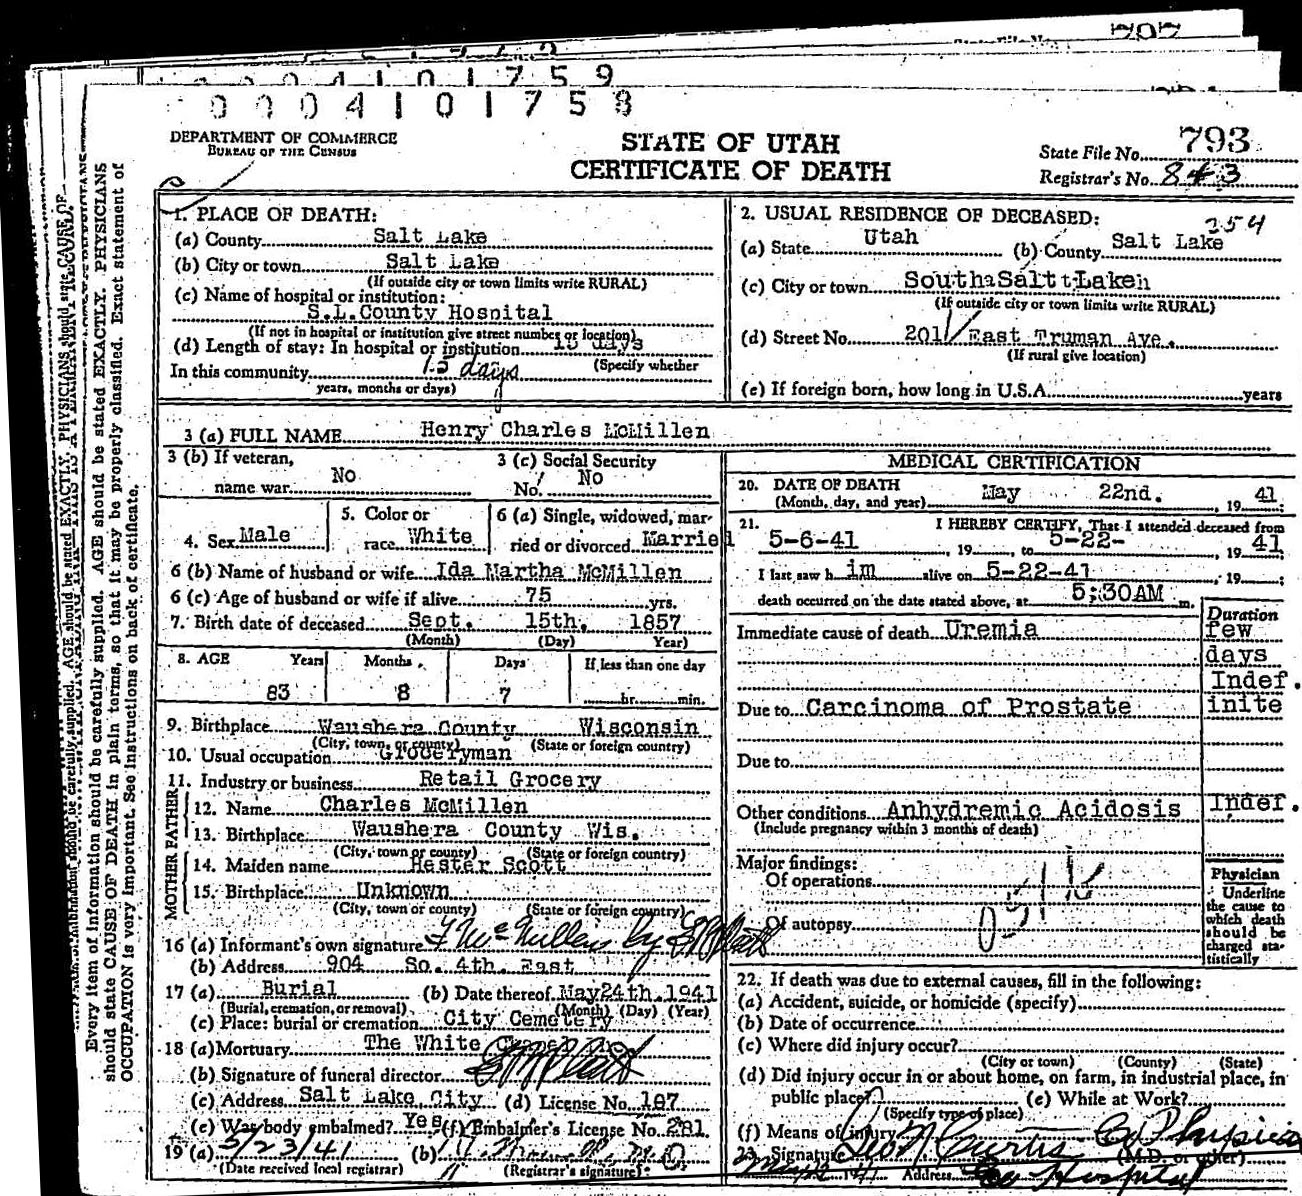 707
0 0 0 4 1 0 1 7 5 9
0 0 0 4 1 0 1 7 5 8
DEPARTMENT OF COMMERCE
BUREAU OF THE CENSUS
STATE OF UTAH
CERTIFICATE OF DEATH
State File No. 793
Registrar's No. 843
1. PLACE OF DEATH:
(a) County Salt Lake
(b) City or town Salt Lake
(If outside city or town limits write RURAL)
(c) Name of hospital or institution:
S.L.County Hospital
(If not in hospital or institution give street number or location)
(d) Length of stay: In hospital or institution 15 days
(Specify whether
In this community 15 days
years, months or days)
2. USUAL RESIDENCE OF DECEASED: 254
(a) State Utah (b) County Salt Lake
(c) City or town South Salt Lake
(If outside city or town limits write RURAL)
(d) Street No. 201 East Truman Ave.
(If rural give location)
(e) If foreign born, how long in U.S.A. years
3 (a) FULL NAME Henry Charles McMillen
3 (b) If veteran,
name war No
3 (c) Social Security
No. No
4. Sex Male
5. Color or
race White
6 (a) Single, widowed, mar-
ried or divorced Married
6 (b) Name of husband or wife Ida Martha McMillen
6 (c) Age of husband or wife if alive 75 yrs.
7. Birth date of deceased Sept. 15th. 1857
(Month) (Day) Year)
8. AGE Years Months Days If less than one day
83 8 7 hr. min.
9. Birthplace Waushera County Wisconsin
(City, town, or county) (State or foreign country)
10. Usual occupation Groceryman
11. Industry or business Retail Grocery
FATHER
12. Name Charles McMillen
13. Birthplace Waushera County Wis.
(City, town or county) (State or foreign country)
MOTHER
14. Maiden name Hester Scott
15. Birthplace Unknown
(City, town or county) (State or foreign country)
16 (a) Informant's own signature McMillen by
(b) Address 904 So. 4th. East
17 (a) Burial (b) Date thereof May 24th. 1941
(Burial, cremation, or removal) (Month) (Day) (Year)
(c) Place: burial or cremation City Cemetery
18 (a) Mortuary The White
(b) Signature of funeral director
(c) Address Salt Lake City (d) License No. 187
(e) Was body embalmed? Yes (f) Embalmer's License No. 281
19 (a) 5/23/41 (b)
(Date received local registrar) (Registrar's signature)
MEDICAL CERTIFICATION
20. DATE OF DEATH
(Month, day, and year) May 22nd. 19 41
21. I HEREBY CERTIFY, That I attended deceased from
5-6-41, 19, to 5-22-, 19 41
I last saw h im alive on 5-22-41, 19
death occurred on the date stated above, at 5:30AM m.
Duration
Immediate cause of death Uremia few
days
Indef.
Due to Carcinoma of Prostate inite
Due to
Other conditions Anhydremic Acidosis Indef.
(Include pregnancy within 3 months of death)
Major findings:
Of operations
Of autopsy
Physician
Underline
the cause to
which death
should be
charged sta-
tistically
22. If death was due to external causes, fill in the following:
(a) Accident, suicide, or homicide (specify)
(b) Date of occurrence
(c) Where did injury occur?
(City or town) (County) (State)
(d) Did injury occur in or about home, on farm, in industrial place, in
public place? (e) While at Work?
(Specify type of place)
(f) Means of injury
23. Signature Curtis Co Physician
(M.D. or other)
Address Co Hospital
Every item of information should be carefully supplied. AGE should be stated EXACTLY. PHYSICIANS
should state CAUSE OF DEATH in plain terms, so that it may be properly classified. Exact statement of
OCCUPATION is very important. See instructions on back of certificate.